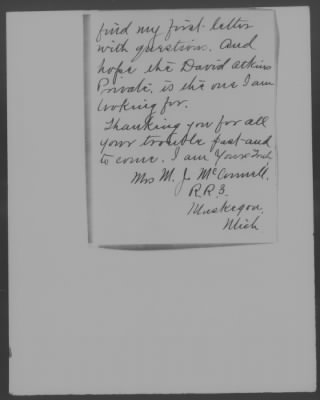 find my first letter
with questions. And
hope the David Atkins
Private, is the one I am
looking for.
Thanking you for all
your trouble past and
to come. I am Yours Truly,
Mrs M. J. McConnell.
R.R.3.
Muskegon,
Mich